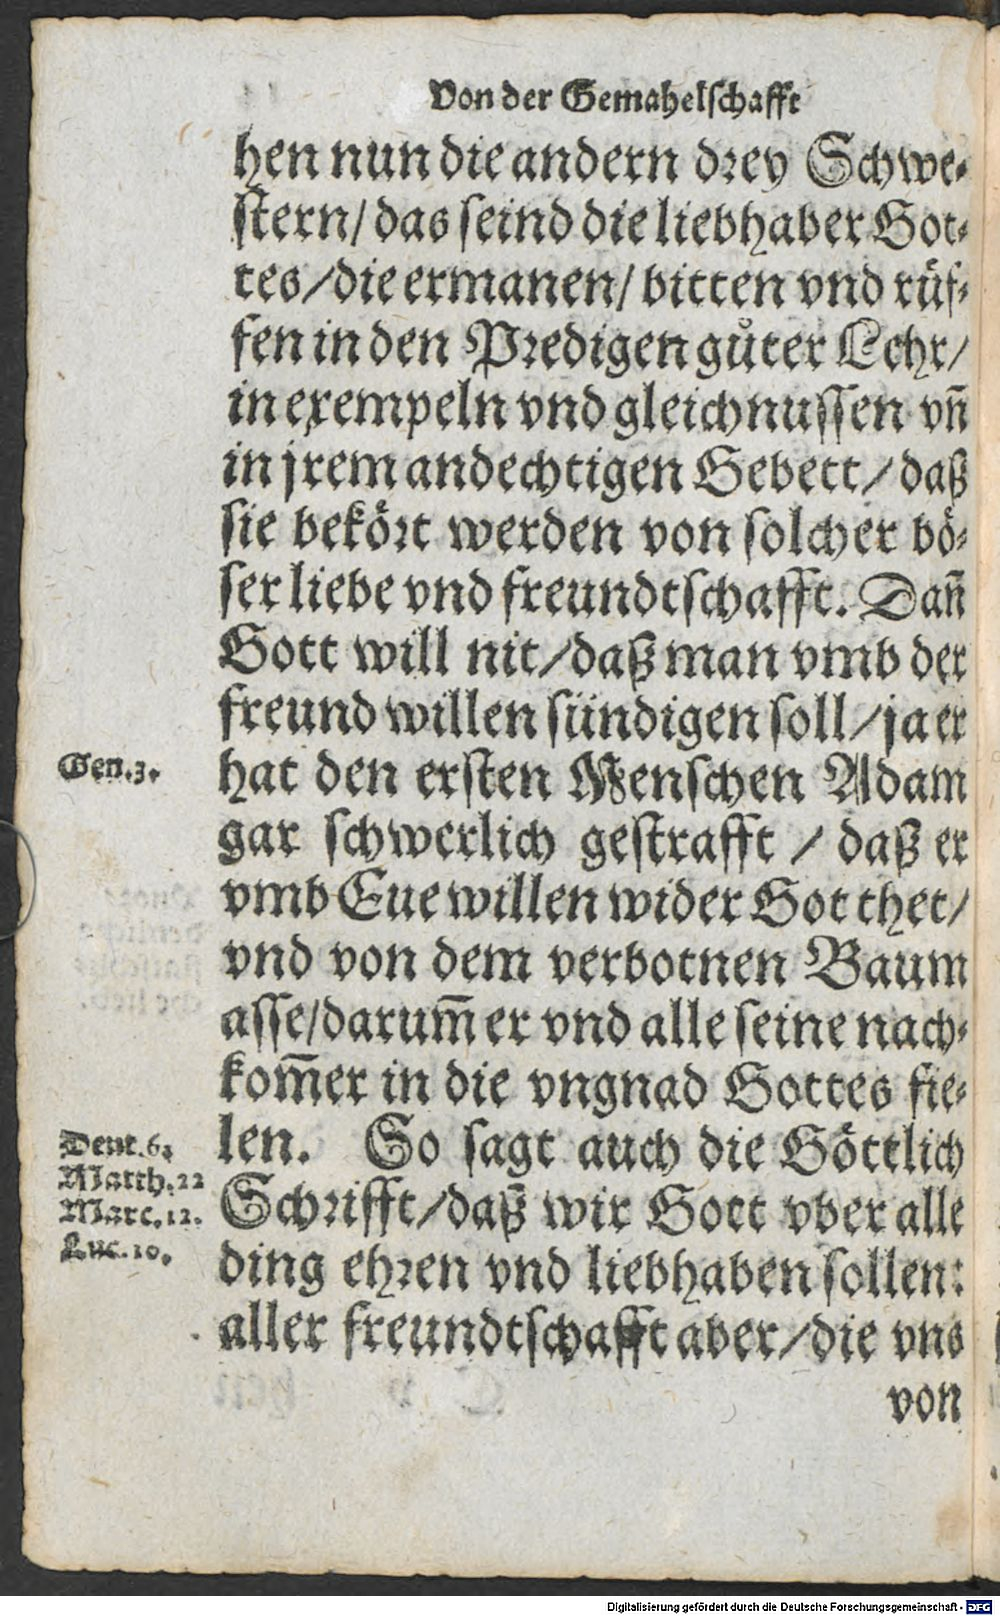 Von der Gemahelschafft
hen nun die andern drey Schwe⸗
stern/ das seind die liebhaber Got⸗
tes/die ermanen/ bitten vnd rüf⸗
fen in den Predigen gůter Lehr/
in exempeln vnd gleichnussen vn̄
in jrem andechtigen Gebett/ daß
sie bekört werden von solcher bö⸗
ser liebe vnd freundtschafft. Dan̄
Gott will nit/daß man vmb der
freund willen sündigen soll/ja er
Gen.3.
hat den ersten Menschen Adam
gar schwerlich gestrafft / daß er
vmb Eue willen wider Got thet/
vnd von dem verbotnen Baum
asse/darum̄ er vnd alle seine nach⸗
kom̄er in die vngnad Gottes fie⸗
Deut.6.
Matth.22
Marc.12.
Luc.10.
len. So sagt auch die Göttlich
Schrifft/daß wir Gott vber alle
ding ehren vnd liebhaben sollen:
aller freundtschafft aber/die vns
von
Digitalisierung gefördert durch die Deutsche Forschungsgemeinschaft - DFG